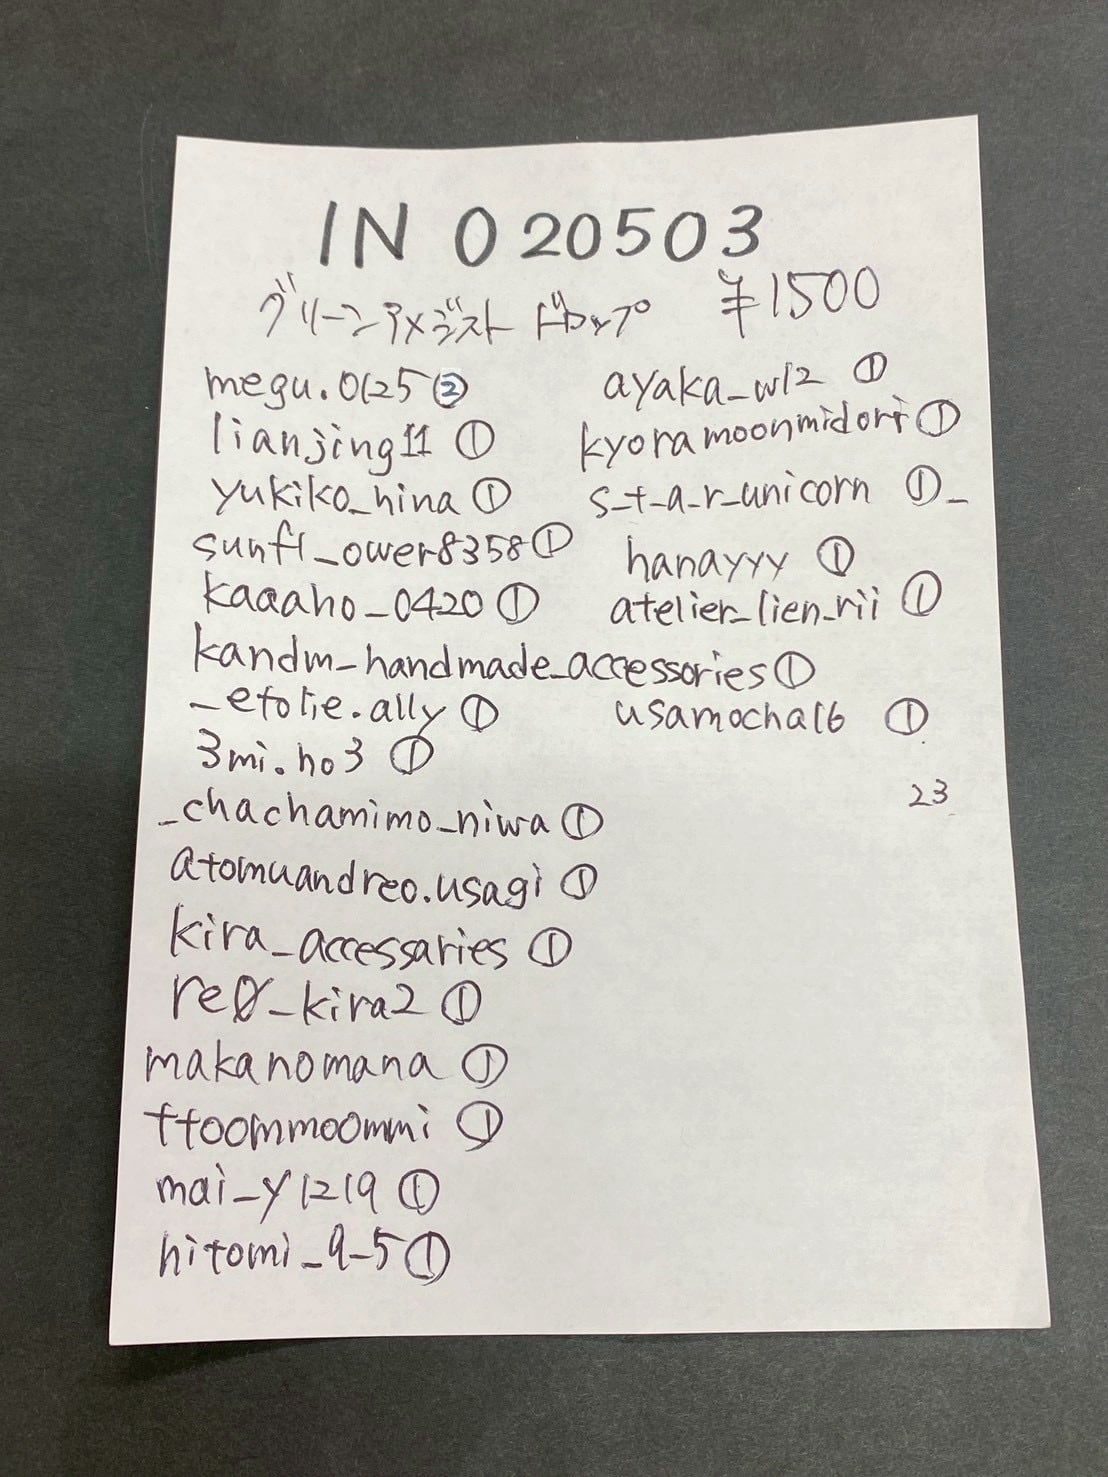 IN 020503
グリーンアメジスト ドロップ ¥1500
megu.0125②
lianjing11 ①
yukiko_nina ①
sunfl_ower8358①
kaaaho_0420 ①
kandm_handmade_accessories①
_etolie.ally ①
3mi.ho3 ①
_chachamimo_niwa ①
atomuandreo.usagi ①
kira_accessaries ①
re0_kira2 ①
makanomana ①
ttoommoommi ①
mai_y1219 ①
hitomi_9_5①
ayaka_w12 ①
kyoramoonmidori①
s_t_a_r_unicorn ①_
hanayyy ①
atelier_lien_rii ①
usamocha16 ①
23